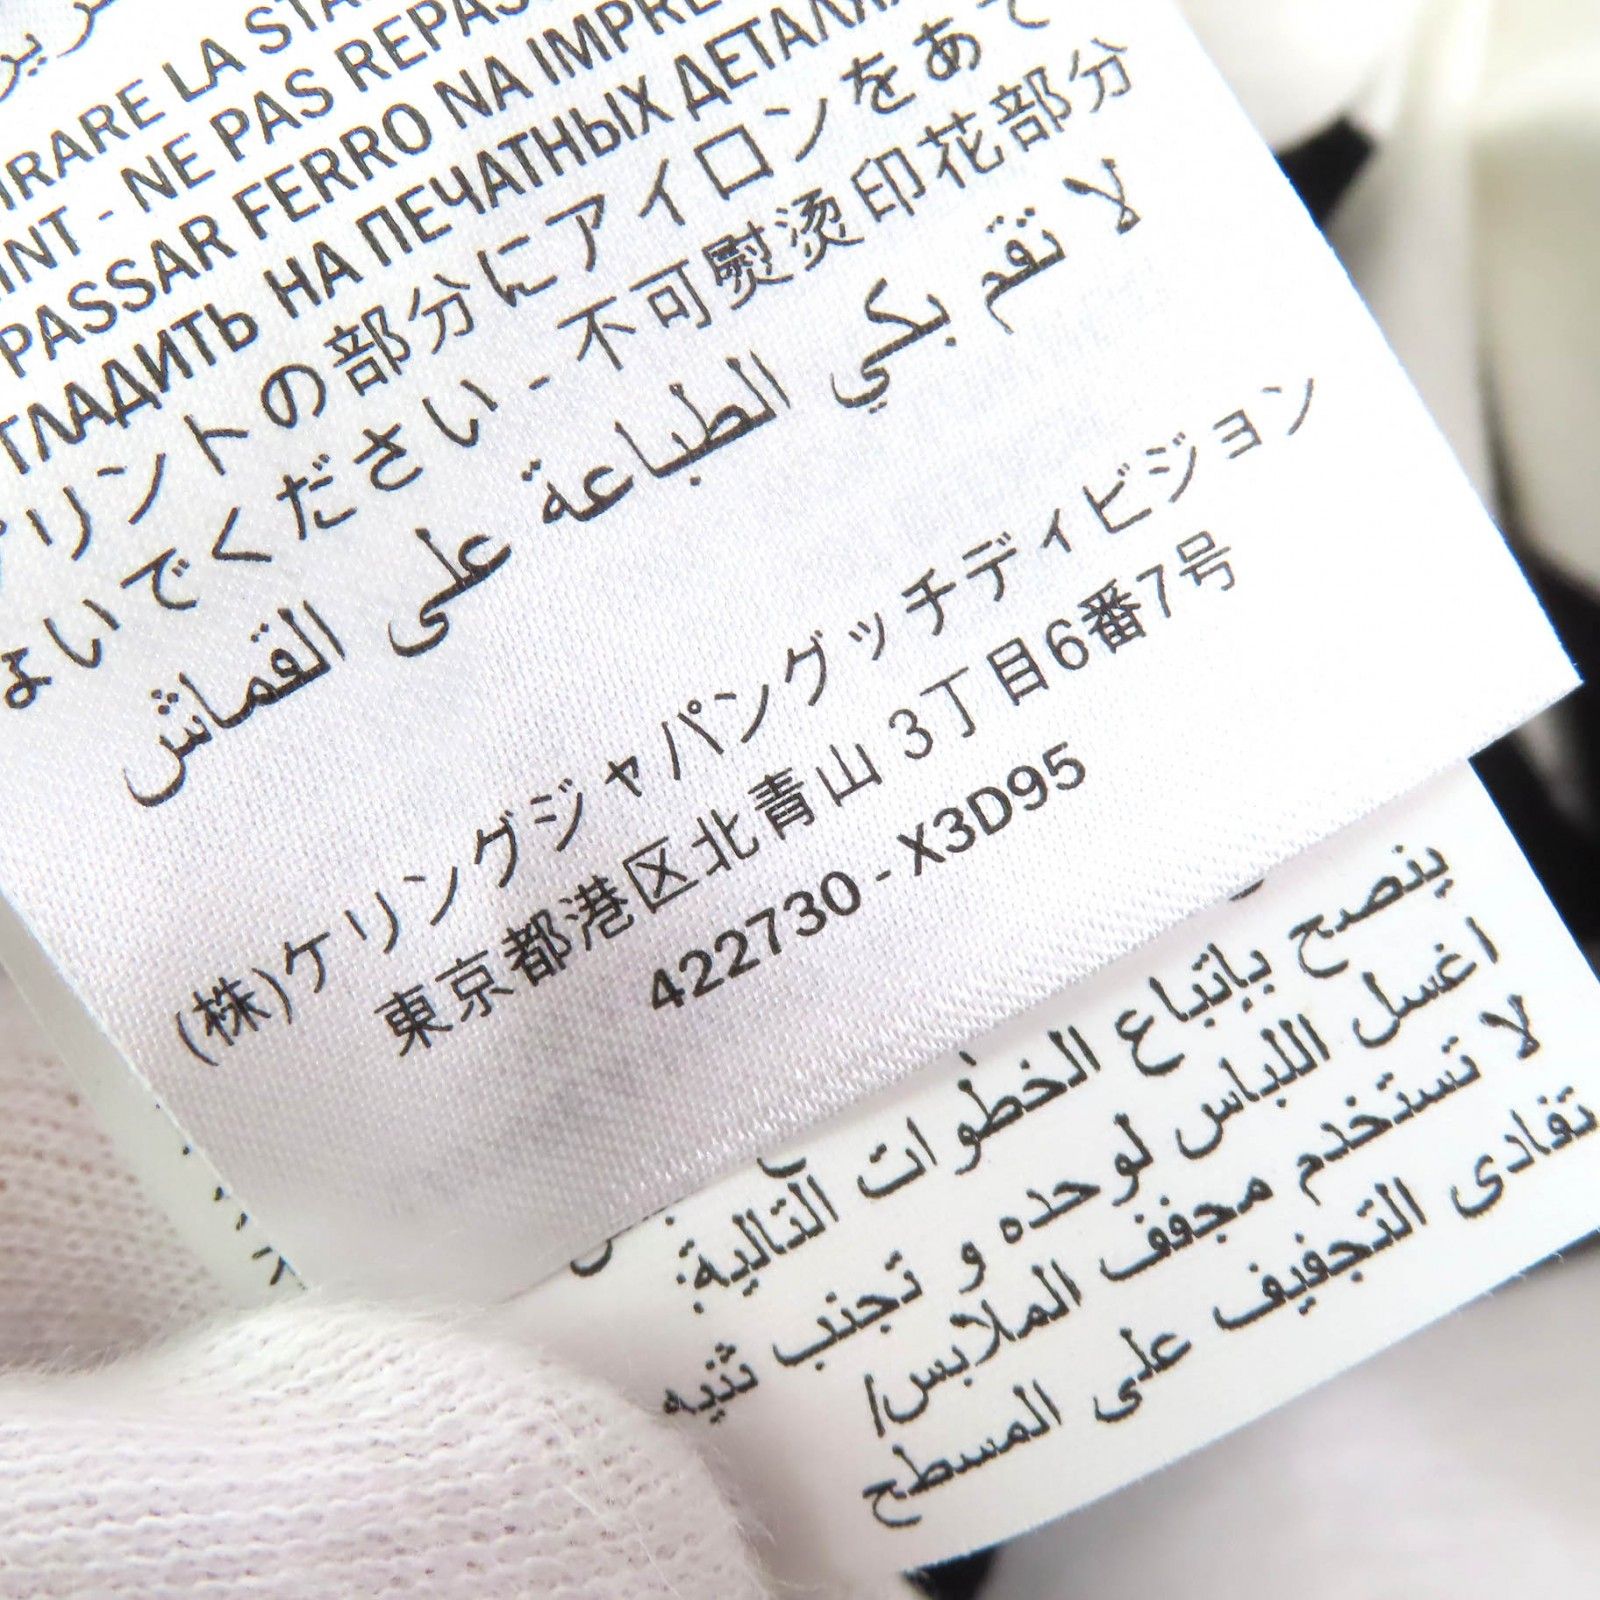 LA
NE PAS
PASSAR FERRO NA
ГЛАДИТЬ НА ПЕЧАТНЫХ
プリントの部分にアイロンをあて
よいでください - 不可熨烫印花部分
لا تقم بكي الطباعة على القماش
(株)ケリングジャパングッチディビジョン
東京都港区北青山 3丁目6番7号
422730 - X3D95
ينصح بإتباع الخطوات التالية:
اغسل اللباس لوحده و تجنب ثنيه
لا تستخدم مجفف الملابس/
تفادى التجفيف على المسطح